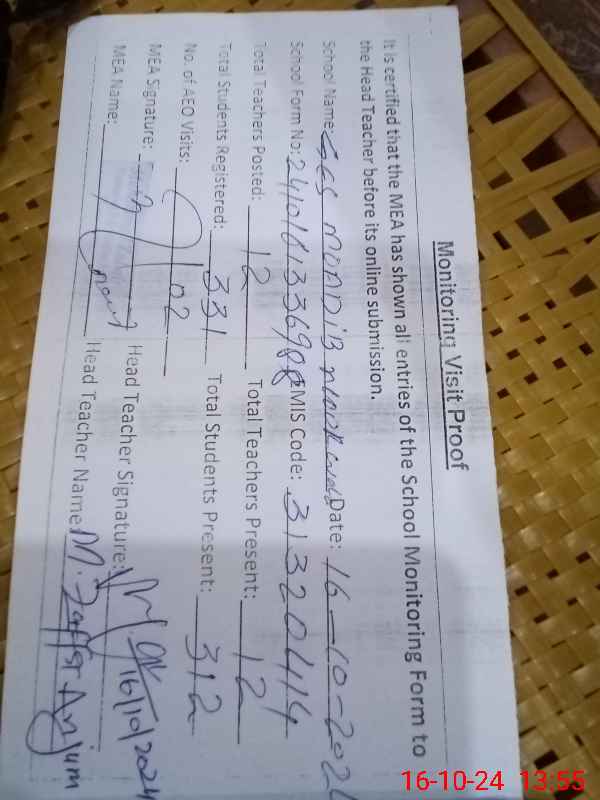 Monitoring Visit Proof
It is certified that the MEA has shown all entries of the School Monitoring Form to
the Head Teacher before its online submission.
School Name: GES Date: 16-10-202
School Form No: EMIS Code: 31320414
Total Teachers Posted: 12 Total Teachers Present: 12
Total Students Registered: 331 Total Students Present: 312
No. of AEO Visits: 02
MEA Signature: Head Teacher Signature: 16/10/2024
MEA Name: Head Teacher Name: M. Zaffer Anjum
16-10-24 13:55